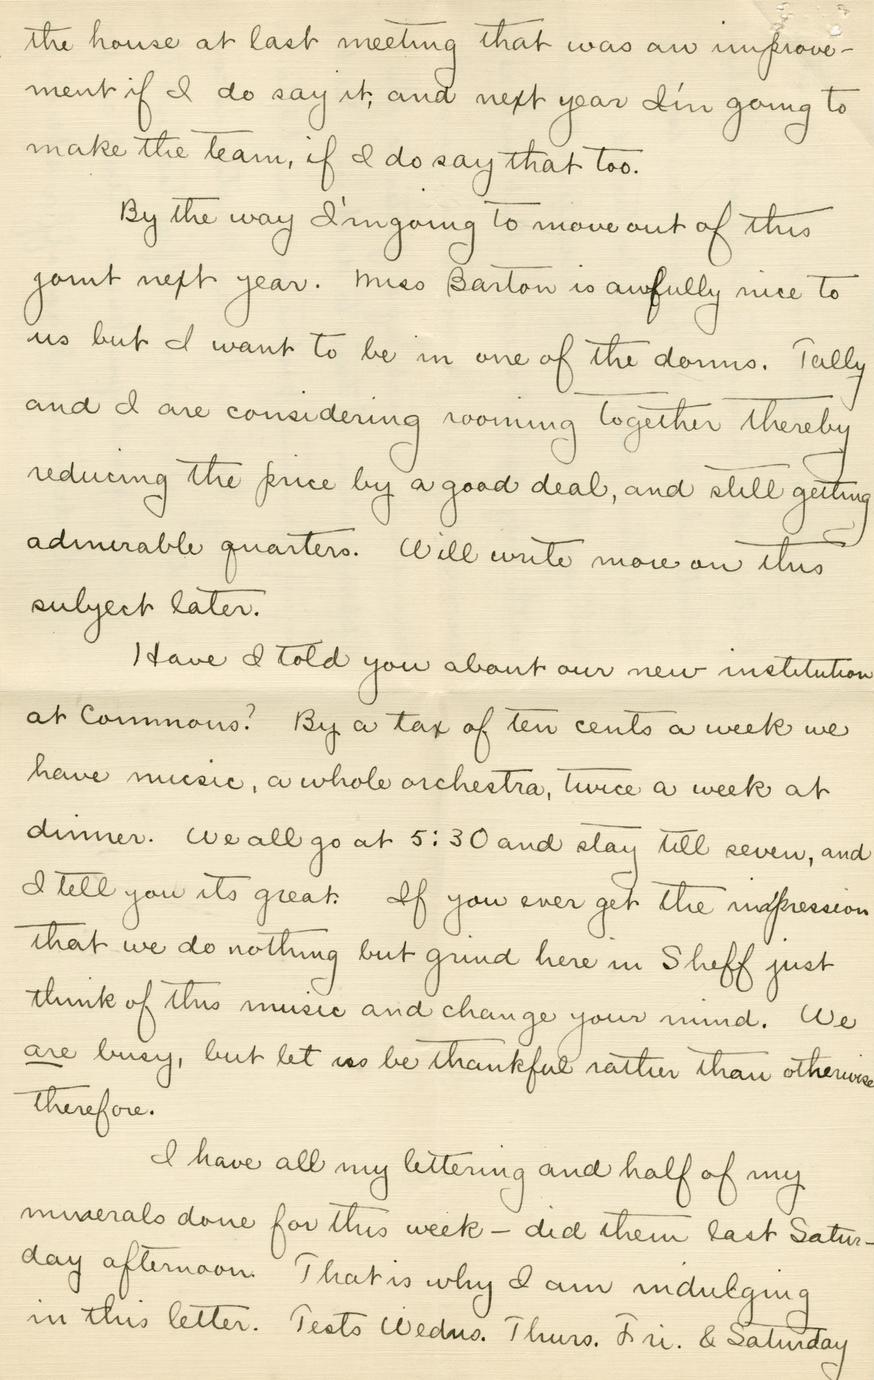 the house at last meeting that was an improve-
ment if I do say it; and next year I'm going to
make the team, if I do say that too.
By the way I'm going to move out of this
joint next year. Miss Barton is awfully nice to
us but I want to be in one of the dorms. Tally
and I are considering rooming together thereby
reducing the price by a good deal, and still getting
admirable quarters. Will write more on this
subject later.
Have I told you about our new institution
at Commons? By a tax of ten cents a week we
have music, a whole orchestra, twice a week at
dinner. We all go at 5:30 and stay till seven, and
I tell you its great. If you ever get the impression
that we do nothing but grind here in Sheff just
think of this music and change your mind. We
are busy, but let us be thankful rather than otherwise
therefore.
I have all my lettering and half of my
minerals done for this week - did them last Satur-
day afternoon. That is why I am indulging
in this letter. Tests Wednes. Thurs. Fri. & Saturday